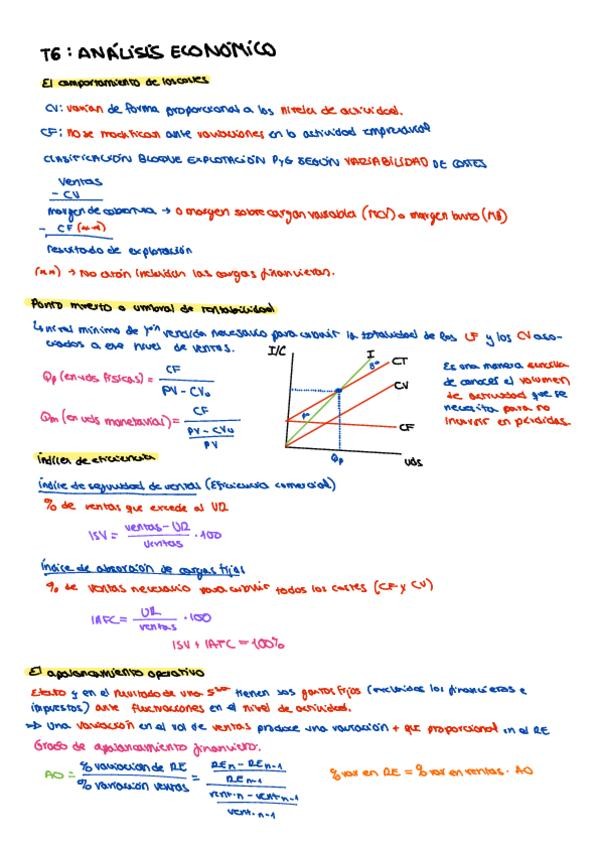 T6: ANÁLISIS ECONÓMICO
El comportamiento de los costes
CV: varían de forma proporcional a los niveles de actividad.
CF: no se modifican ante variaciones en la actividad empresarial
CLASIFICACIÓN BLOQUE EXPLOTACIÓN PyG SEGÚN VARIABILIDAD DE COSTES
Ventas
- CV
margen de cobertura → o margen sobre cargas variable (MCV) o margen bruto (MB)
- CF (**)
resultado de explotación
(**) → No están incluidas las cargas financieras.
Punto muerto o umbral de rentabilidad
↳ nivel mínimo de pon vendida necesario para cubrir la totalidad de los CF y los CV aso-
ciados a ese nivel de ventas.
Qp (en uds físicas) = CF / PV - CVu
Qm (en uds monetarias) = CF / PV - CVu / PV
I/C
I
Bº
CT
CV
Pº
CF
Qp
uds
Es una manera sencilla
de conocer el volumen
de actividad que se
necesita para no
incurrir en pérdidas.
Índices de eficiencia
Índice de seguridad de ventas (Eficiencia comercial)
% de ventas que excede al UR
ISV = ventas - UR / ventas · 100
Índice de absorción de cargas fijas
% de ventas necesario para cubrir todos los costes (CF y CV)
IAFC = UR / ventas · 100
ISV + IAFC = 100%
El apalancamiento operativo
Efecto y en el resultado de una tienen sus gastos fijos (excluidos los financieros e
impuestos) ante fluctuaciones en el nivel de actividad.
→ Una variación en el vol de ventas produce una variación + que proporcional en el RE
Grado de apalancamiento financiero:
AO = % variación de RE / % variación ventas = REn - REn-1 / REn-1 / vent.n - vent.n-1 / vent.n-1
% var en RE = % var en ventas · AO